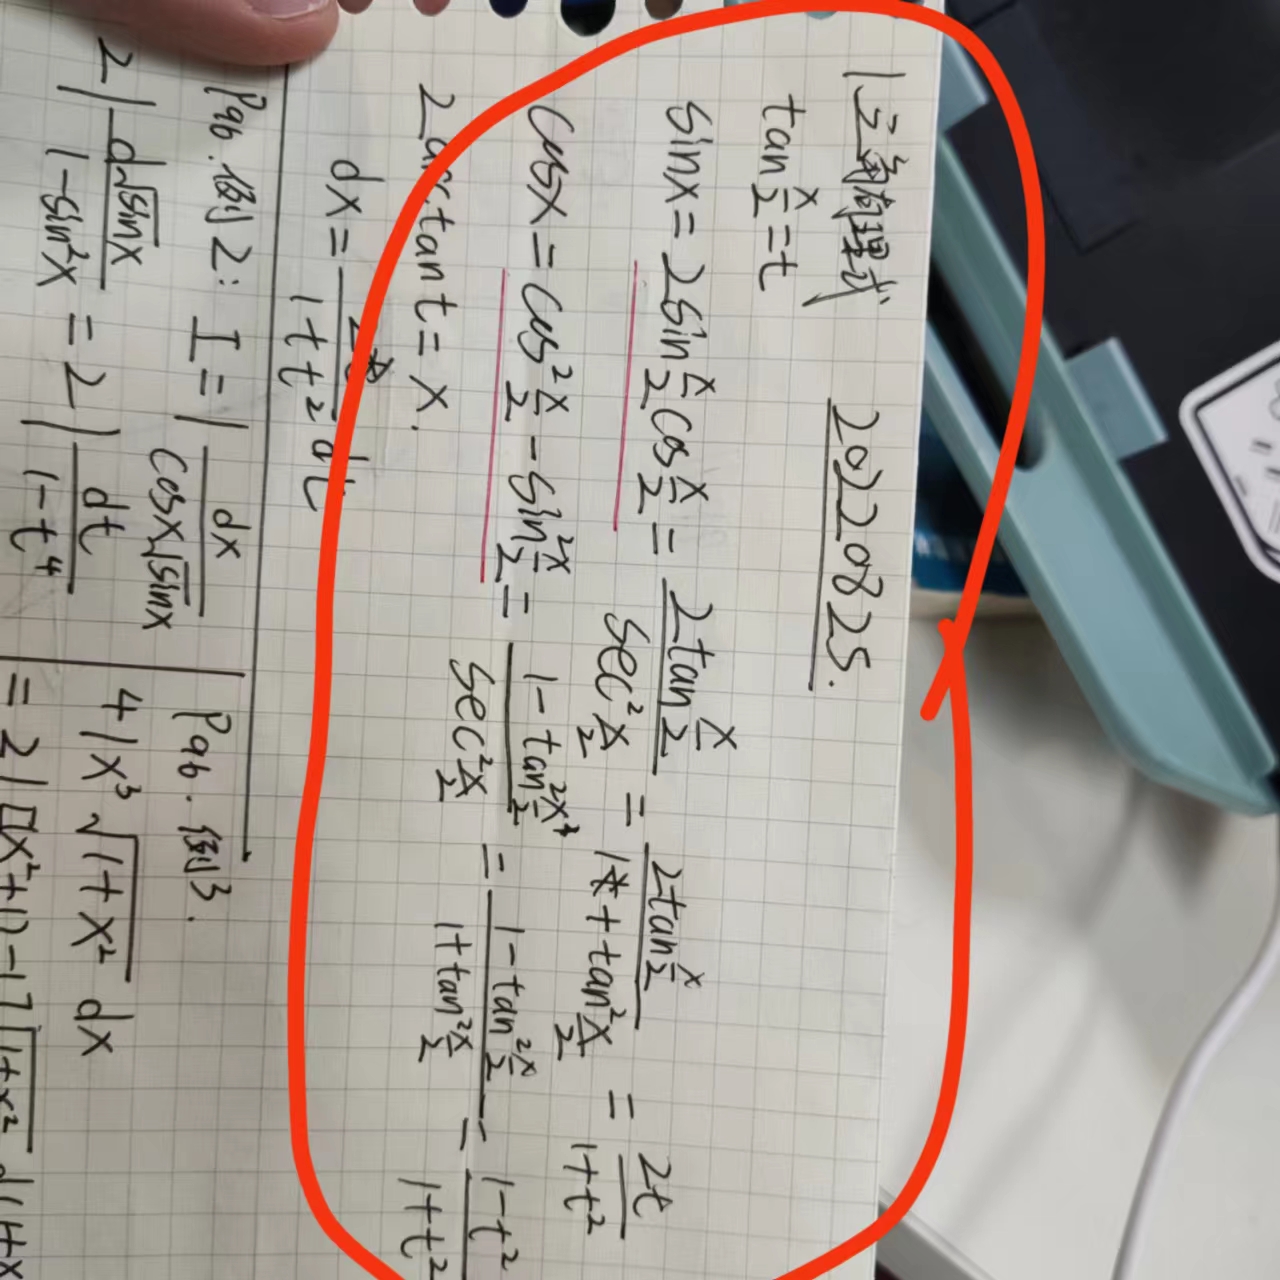 ∫三角有理式 20220825.
tan x/2 = t
sinx = 2sin x/2 cos x/2 = 2tan x/2 / sec² x/2 = 2tan x/2 / 1+tan² x/2 = 2t / 1+t²
cosx = cos² x/2 - sin² x/2 = 1-tan² x/2 / sec² x/2 = 1-tan² x/2 / 1+tan² x/2 = 1-t² / 1+t²
2arctan t = x.
dx = 2 / 1+t² dt
P96. 例2: I = ∫ dx / cosx√sinx
2∫ d√sinx / 1-sin²x = 2∫ dt / 1-t⁴
P96. 例3.
4∫x³√1+x² dx
= 2∫[(x²+1)-1]√1+x² d(1+x